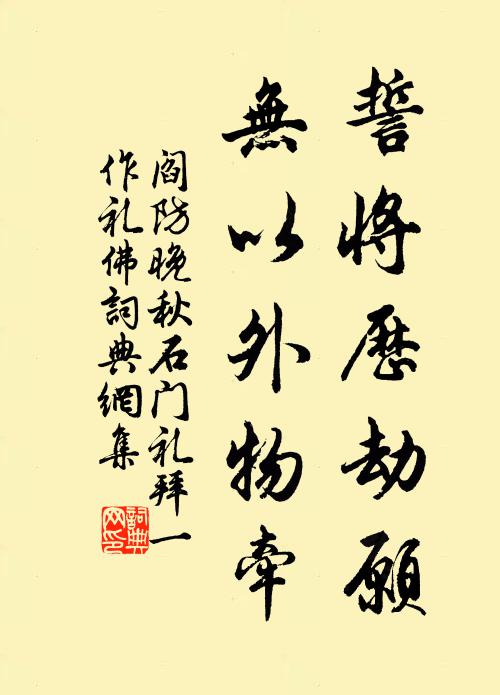 誓將歷劫願
無以外物牽
閻防晚秋石门礼拜一
作礼佛詞典網集
詞典
网印